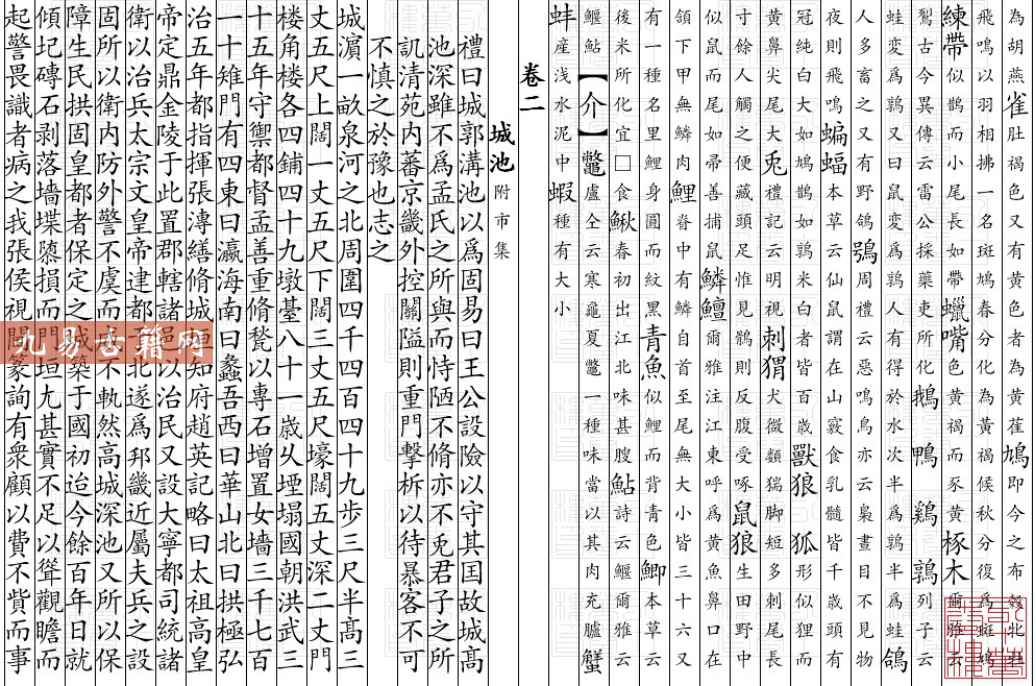 為胡燕雀肚褐色又有黃色者為黃萑鳩即今之布
飛鳴以羽相拂一名斑鳩春分化為黃褐候秋分復為斑鳩
練帶似鵲而小尾長如帶蠟嘴色黃褐而豕黃椓木爾雅云
鴽古今異傳云雷公採藥吏所化鵝鴨鷄鶉列子云
蛙變為鶉又曰鼠變為鶉人有得於水次半為鶉半為蛙鴿
人多畜之又有野鴿鴞周禮云惡鳴鳥亦云梟晝目不見物
夜則飛鳴蝙蝠本草云仙鼠謂在山竅食乳髓皆千歲有
冠純白大如鳩鵲如鶉米白者皆百歲獸狼狐形似狸而
黃鼻尖尾大兎禮記云明視刺猬犬微顱猯脚短多刺尾長
寸餘人觸之便藏頭足惟見鵲則反腹受啄鼠狼生田野中
似鼠而尾如帚善捕鼠鱗鱣爾雅注江東呼爲黃魚鼻口在
領下甲無鱗肉鯉脊中有鱗自首至尾無大小皆三十六又
有一種名里鯉身圓而紋黑青魚似鯉而背青色鯽本草云
後米所化宜□食鰍春初出江北味甚腴鮎詩云鰋爾雅云
鰋鮎【介】鼈盧仝云寒龜夏鼈一種味當以其肉充臚蟹
蚌産浅水泥中蝦種有大小
卷二
城池附市集
禮曰城郭溝池以爲固易曰王公設險以守其国故城高
池深雖不爲孟氏之所與而恃陋不脩亦不免君子之所
訊清苑内蕃京畿外控關隘則重門擊柝以待暴客不可
不慎之於豫也志之
城濵一畝泉河之北周圍四千四百四十九步三尺半髙三
丈五尺上闊一丈五尺下闊三丈五尺壕闊五丈深二丈門
楼角楼各四鋪四十九墩臺八十一嵗乆堙塌國朝洪武三
十五年守禦都督孟善重脩甃以專石增置女墻三千七百
一十雉門有四東曰瀛海南曰蠡吾西曰華山北曰拱極弘
治五年都指揮張溥繕脩城垣知府趙英記略曰太祖高皇
帝定鼎金陵于此置郡轄諸邑以治民又設大寧都司統諸
衛以治兵太宗文皇帝建都于北遂爲邦畿近屬夫兵之設
固所以衛内防外警不虞而不軌然高城深池又所以保
障生民拱固皇都者保定之城築于國初迨今餘百年日就
傾圮磚石剥落墙堞隳損而門垣尢甚實不足以聳觀瞻而
起警畏識者病之我張侯視閫篆詢有衆顧以費不貲而事
九易古籍网